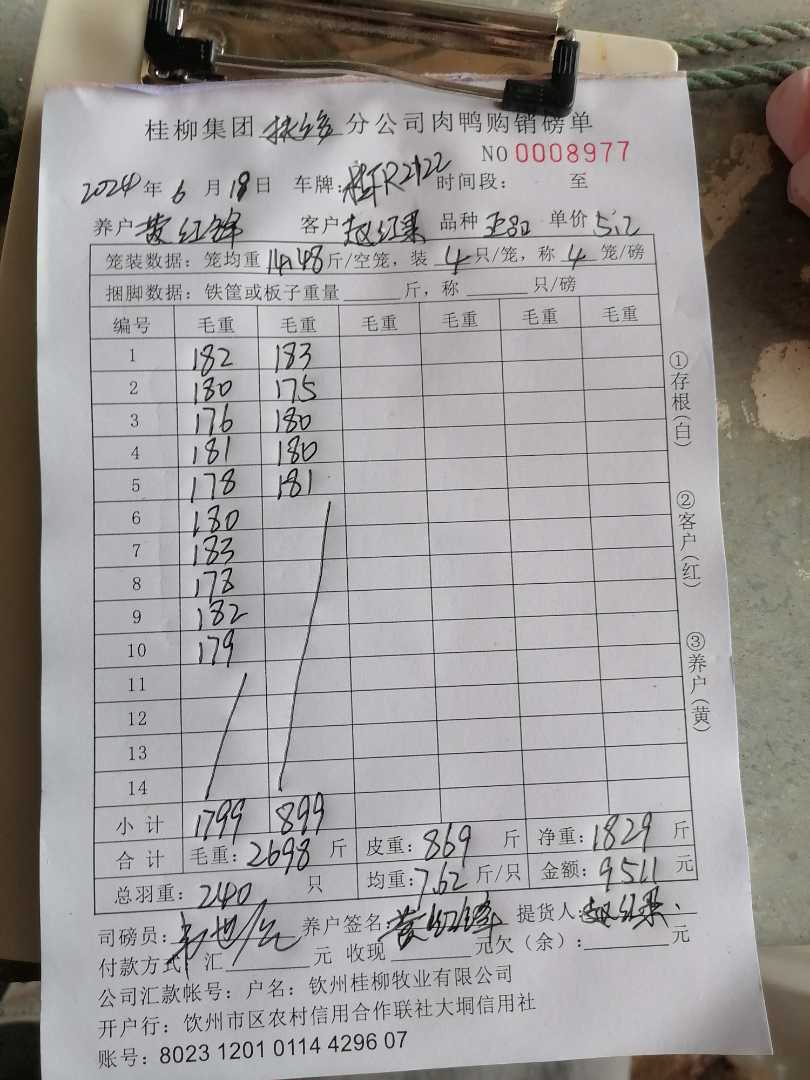 桂柳集团 分公司肉鸭购销磅单
NO 0008977
2024 年 6 月 18 日 车牌: 桂FR2122 时间段: 至
养户 黄红锋 客户 赵红果 品种 单价 5.2
笼装数据: 笼均重 14.48 斤/空笼, 装 4 只/笼, 称 4 笼/磅
捆脚数据: 铁筐或板子重量 斤, 称 只/磅
编号 毛重 毛重 毛重 毛重 毛重 毛重
1 182 183
2 180 175
3 176 180
4 181 180
5 178 181
6 180
7 183
8 178
9 182
10 179
11
12
13
14
小计 1799 899
合计 毛重: 2698 斤 皮重: 869 斤 净重: 1829 斤
总羽重: 240 只 均重: 7.62 斤/只 金额: 9511 元
司磅员: 养户签名: 黄红锋 提货人: 赵红果
付款方式 汇 元 收现 元欠(余): 元
公司汇款帐号: 户名: 钦州桂柳牧业有限公司
开户行: 钦州市区农村信用合作联社大垌信用社
账号: 8023 1201 0114 4296 07
①存根(白)
②客户(红)
③养户(黄)